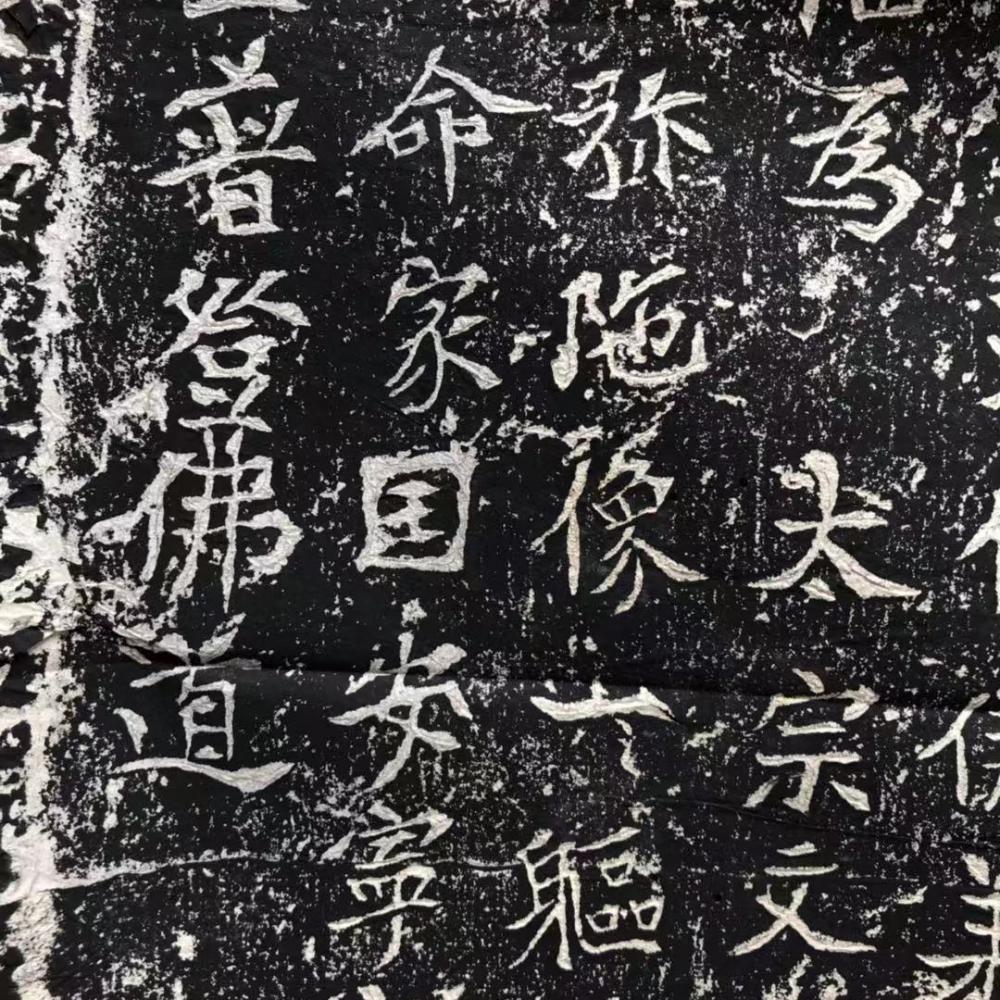 為太宗文
弥陁像一軀
命家囯安寧
普登佛道